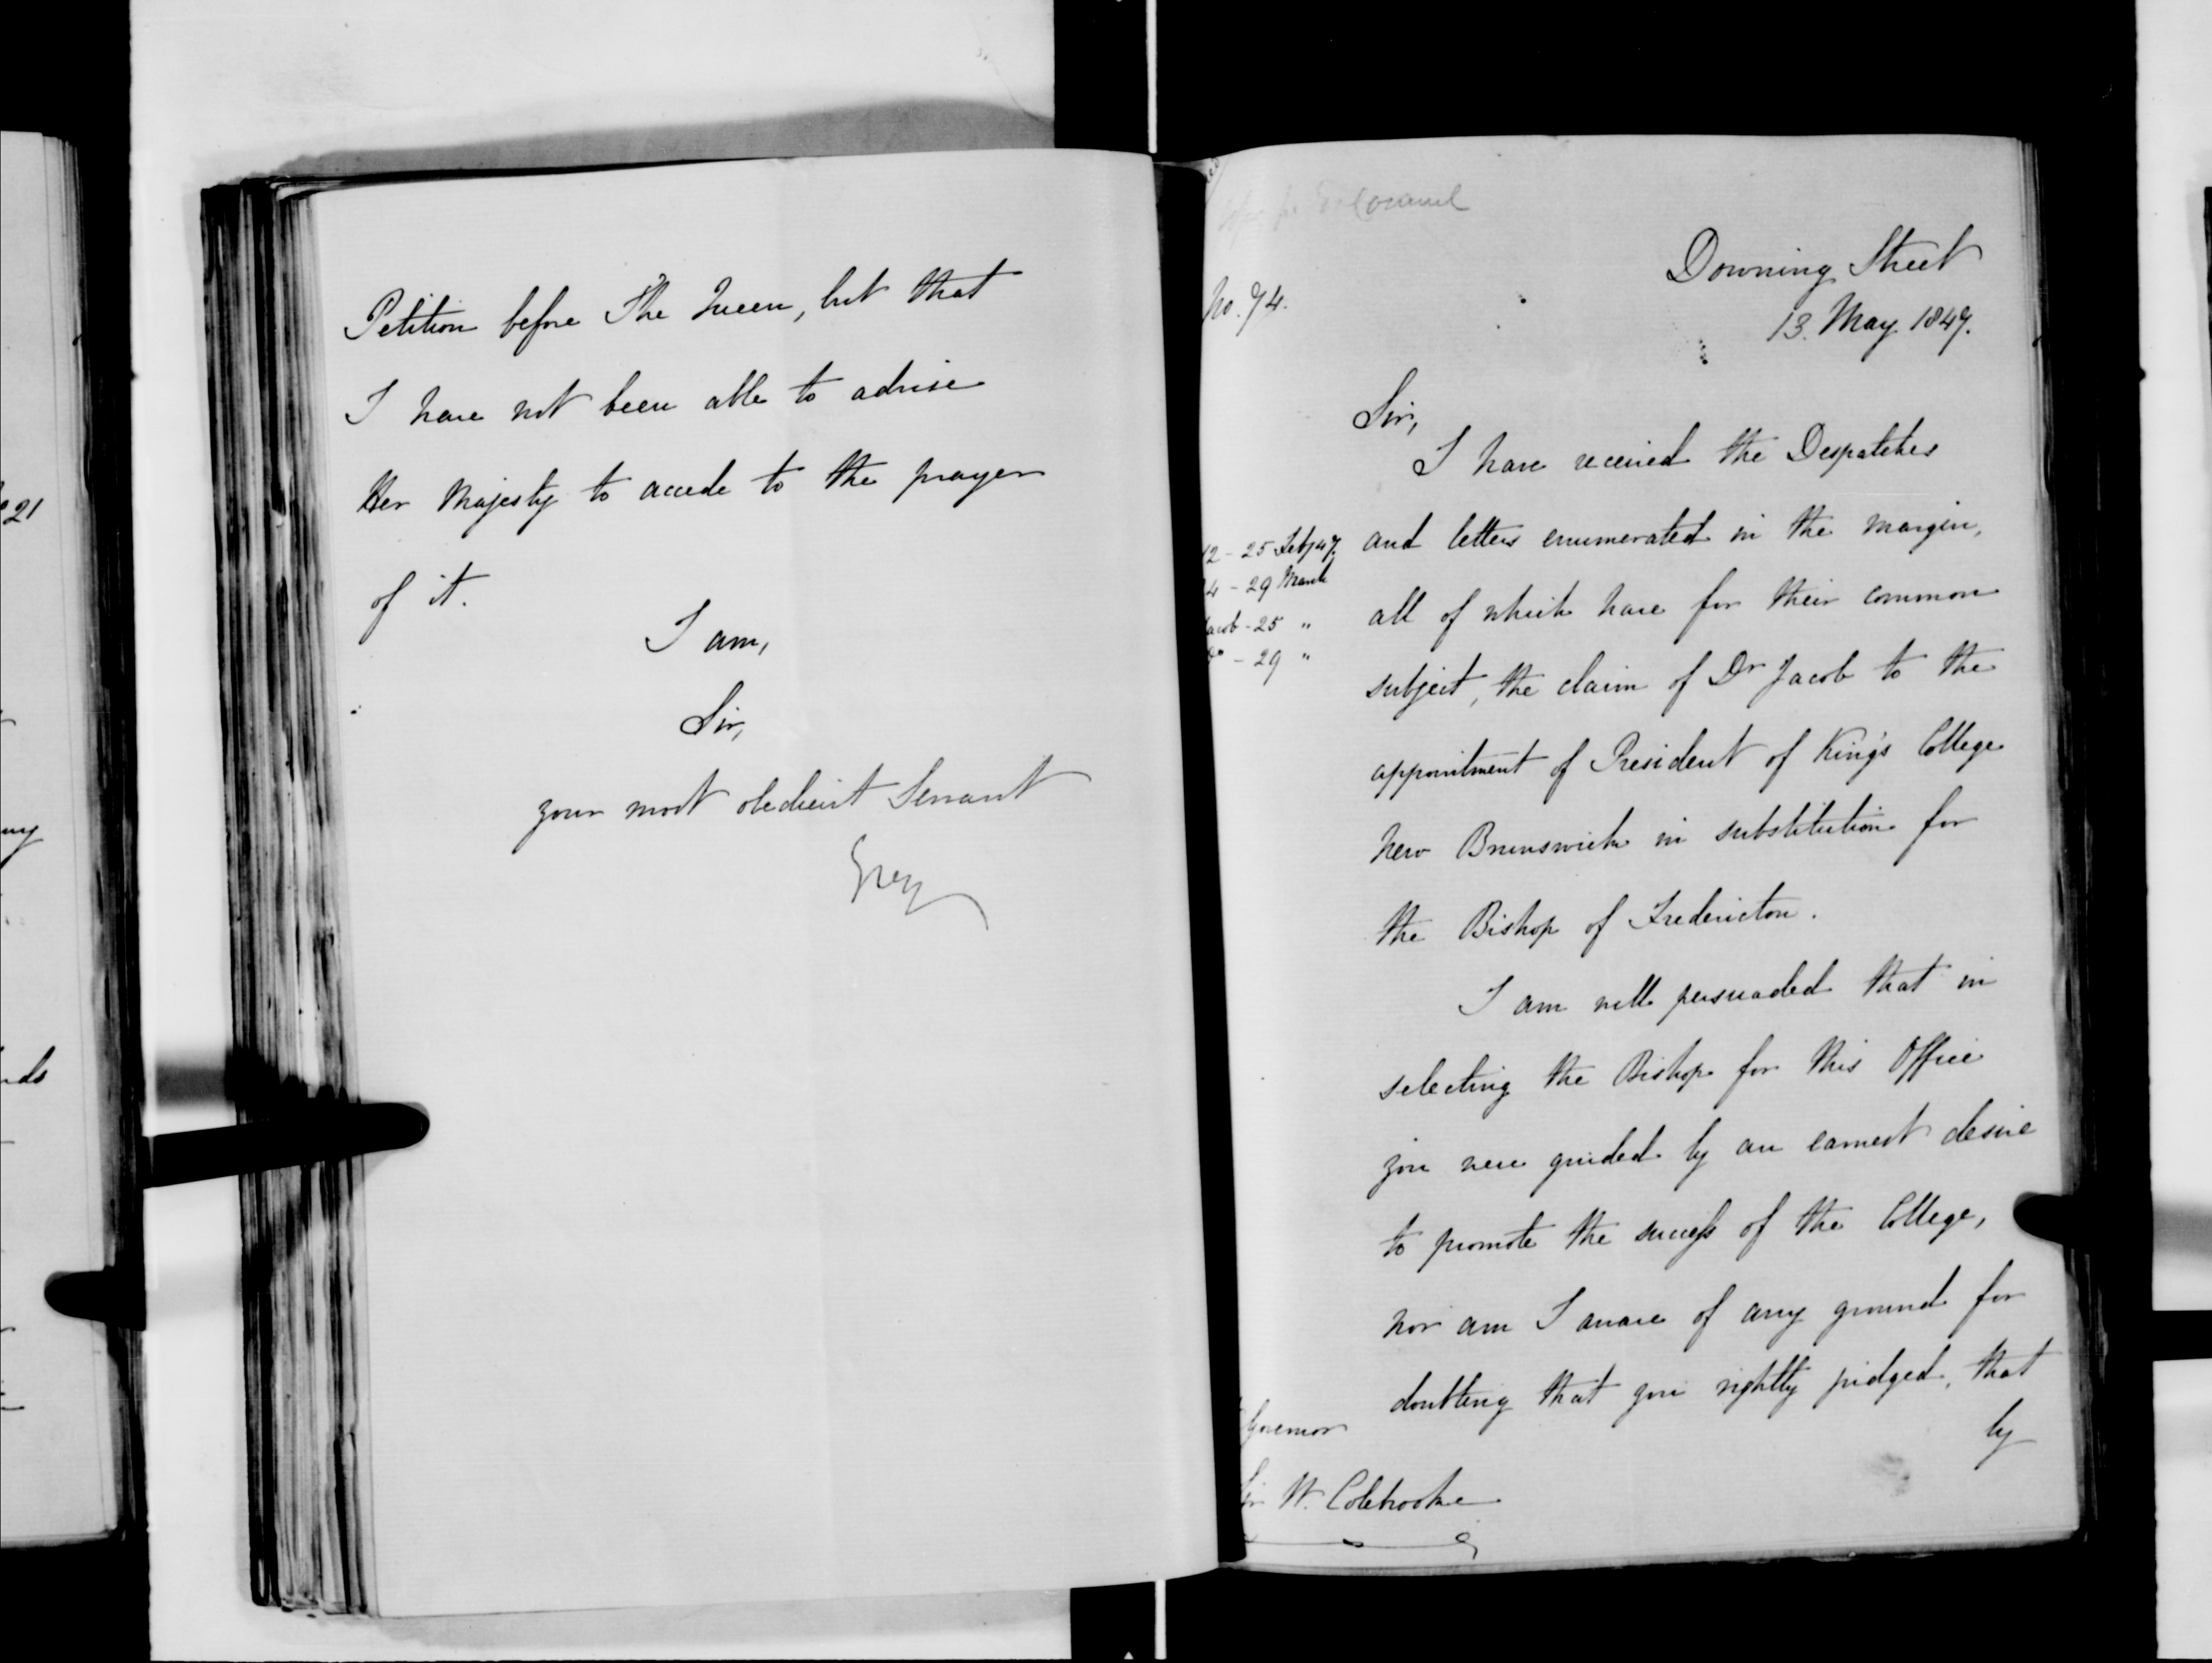 Petition before The Queen, but that
I have not been able to advise
Her Majesty to accede to the prayer
of it.
I am,
Sir,
your most obedient Servant
Grey
Council
No. 74.
Downing Street
13. May 1847.
Sir,
I have received the Despatches
12 - 25 Feby 47.
and letters enumerated in the margin,
4 - 29 March
all of which have for their common
acob - 25 "
- 29 "
subject, the claim of Dr Jacob to the
appointment of President of King's College
New Brunswick in substitution for
the Bishop of Fredericton.
I am well persuaded that in
selecting the Bishop for this Office
you were guided by an earnest desire
to promote the success of the College,
nor am I aware of any ground for
doubting that you rightly judged, that
by
Governor
Sir W. Colebrooke
21
ny
ds